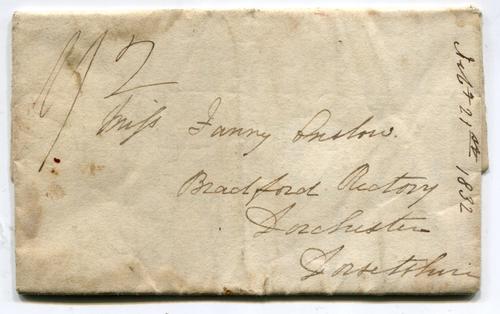 1/2
Miss Fanny Onslow.
Bradford Rectory
Dorchester
Dorsetshire
21st 1832